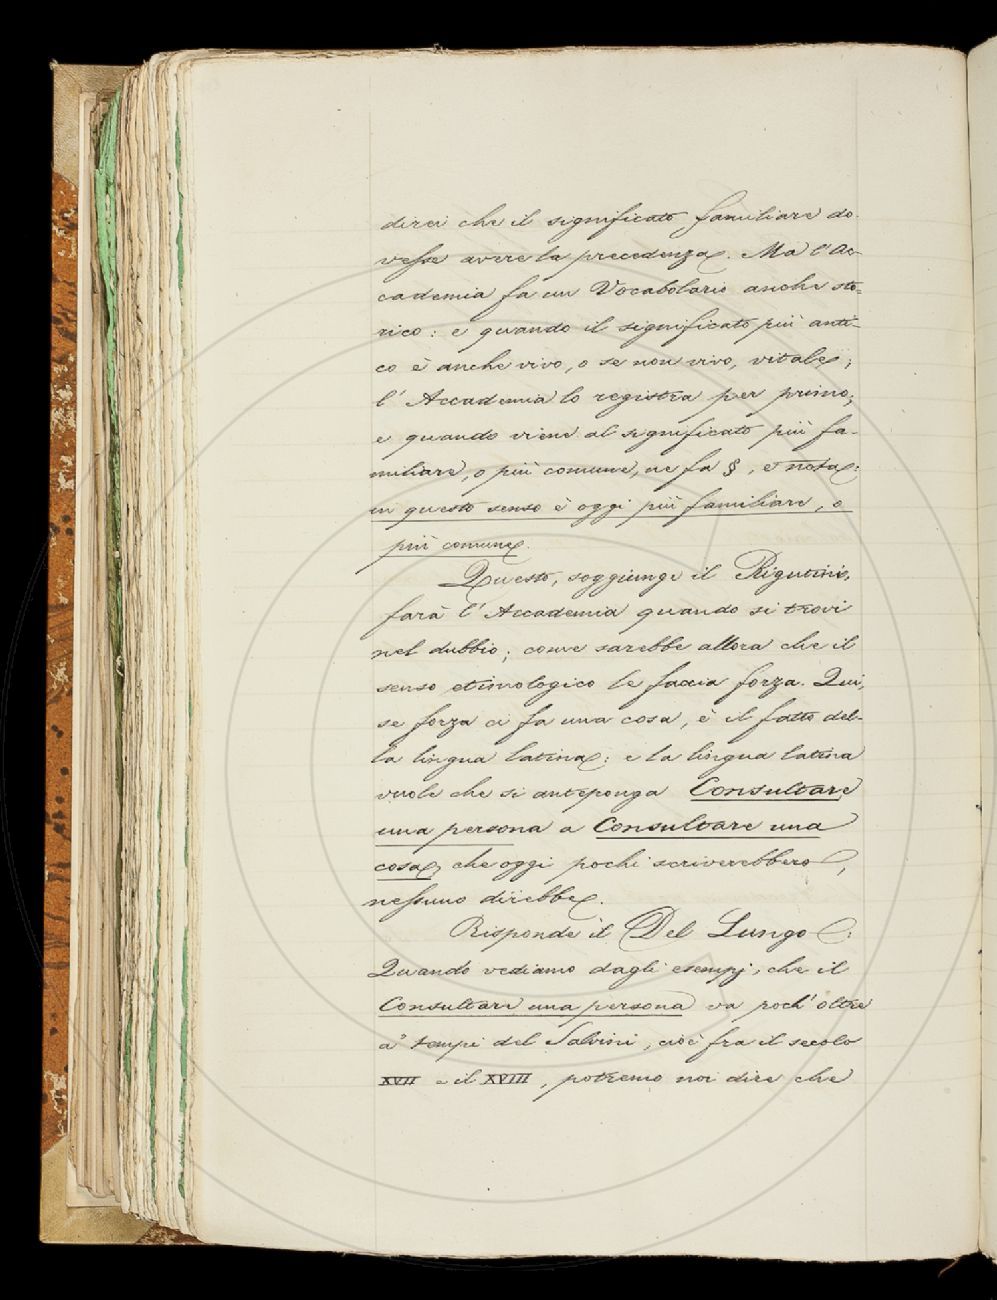 direi che il significato familiare do-
vesse avere la precedenza. Ma l'Ac-
cademia fa un Vocabolario anche sto-
rico: e quando il significato più anti-
co è anche vivo, o se non vivo, vitale;
l'Accademia lo registra per primo;
e quando viene al significato più fa-
miliare, o più comune, ne fa §, e nota:
in questo senso è oggi più familiare, o
più comune.
Questo, soggiunge il Rigutini,
farà l'Accademia quando si trovi
nel dubbio; come sarebbe allora che il
senso etimologico le faccia forza. Qui,
se forza ci fa una cosa, è il fatto del-
la lingua latina: e la lingua latina
vuole che si anteponga Consultare
una persona a Consultare una
cosa, che oggi pochi scriverebbero,
nessuno direbbe.
Risponde il Del Lungo:
Quando vediamo dagli esempj, che il
Consultare una persona va poch' oltre
a' tempi del Salvini, cioè fra il secolo
XVII e il XVIII, potremo noi dire che